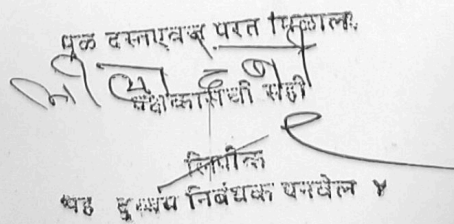 मुळ दस्तऐवज परत मिळाला.
पक्षकाराची सही
लिपीक
सह दुय्यम निबंधक पनवेल ४